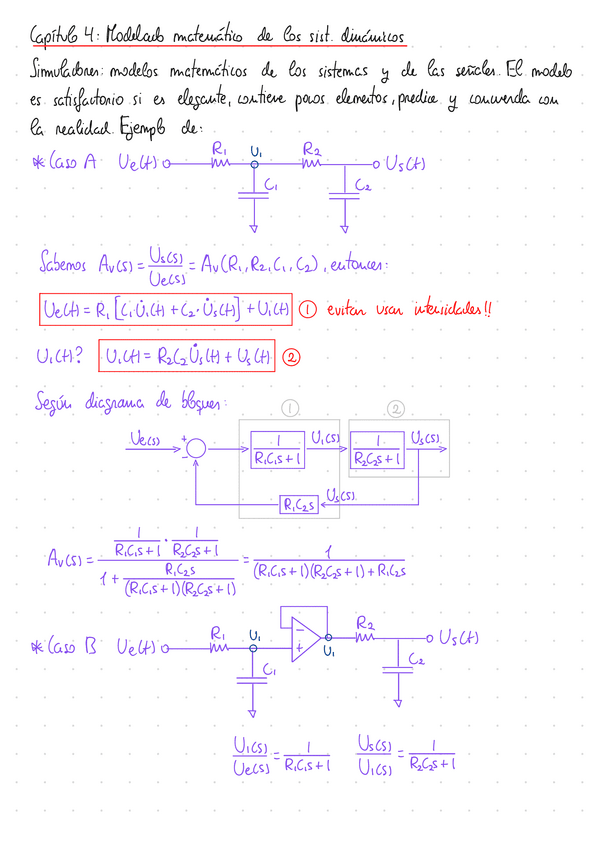 Capítulo 4: Modelado matemático de los sist. dinámicos
Simuladores: modelos matemáticos de los sistemas y de las señales. El modelo
es satisfactorio si es elegante, contiene pocos elementos, predice y concuerda con
la realidad. Ejemplo de:
* Caso A Ue(t) R₁ U₁ R₂ Us(t)
C₁ C₂
Sabemos Av(s) = Us(s)/Ue(s) = Av(R₁, R₂, C₁, C₂), entonces:
Ue(t) = R₁ [C₁U̇₁(t) + C₂·U̇s(t)] + U₁(t) ① evitar usar intensidades!!
U₁(t)? U₁(t) = R₂C₂U̇s(t) + Us(t) ②
Según diagrama de bloques:
① ②
Ue(s) + - 1/(R₁C₁s+1) U₁(s) 1/(R₂C₂s+1) Us(s)
R₁C₂s Us(s)
Av(s) = (1/(R₁C₁s+1) · 1/(R₂C₂s+1)) / (1 + R₁C₂s/((R₁C₁s+1)(R₂C₂s+1))) = 1/((R₁C₁s+1)(R₂C₂s+1)+R₁C₂s)
* Caso B Ue(t) R₁ U₁ - + U₁ R₂ Us(t)
C₁ C₂
U₁(s)/Ue(s) = 1/(R₁C₁s+1) Us(s)/U₁(s) = 1/(R₂C₂s+1)